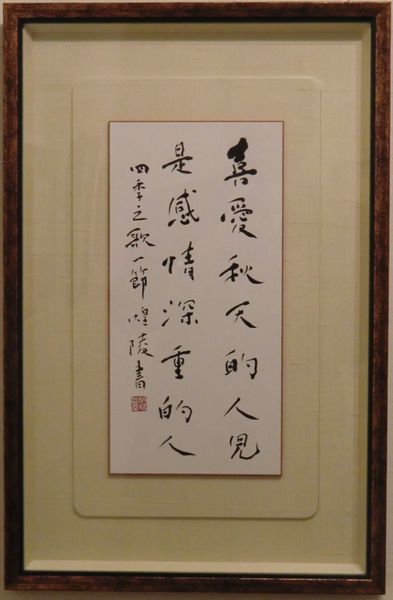 喜愛秋天的人兒
是感情深重的人
四季之歌一節 煌陵書